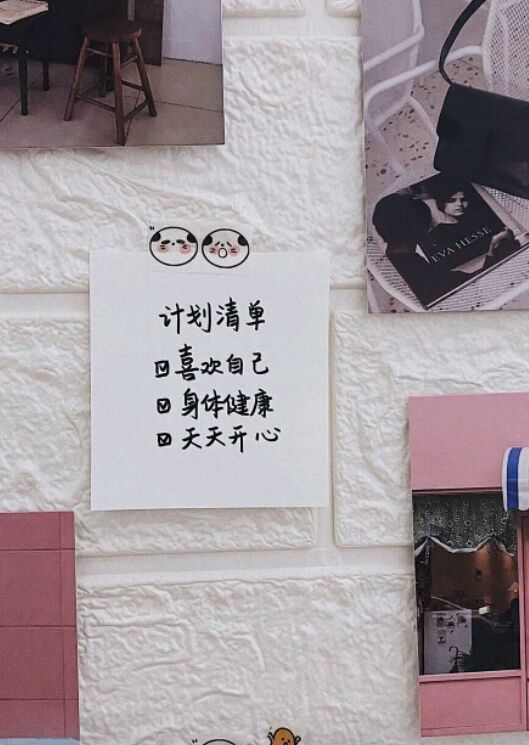 EVA HESSE
计划清单
☑喜欢自己
☑身体健康
☑天天开心